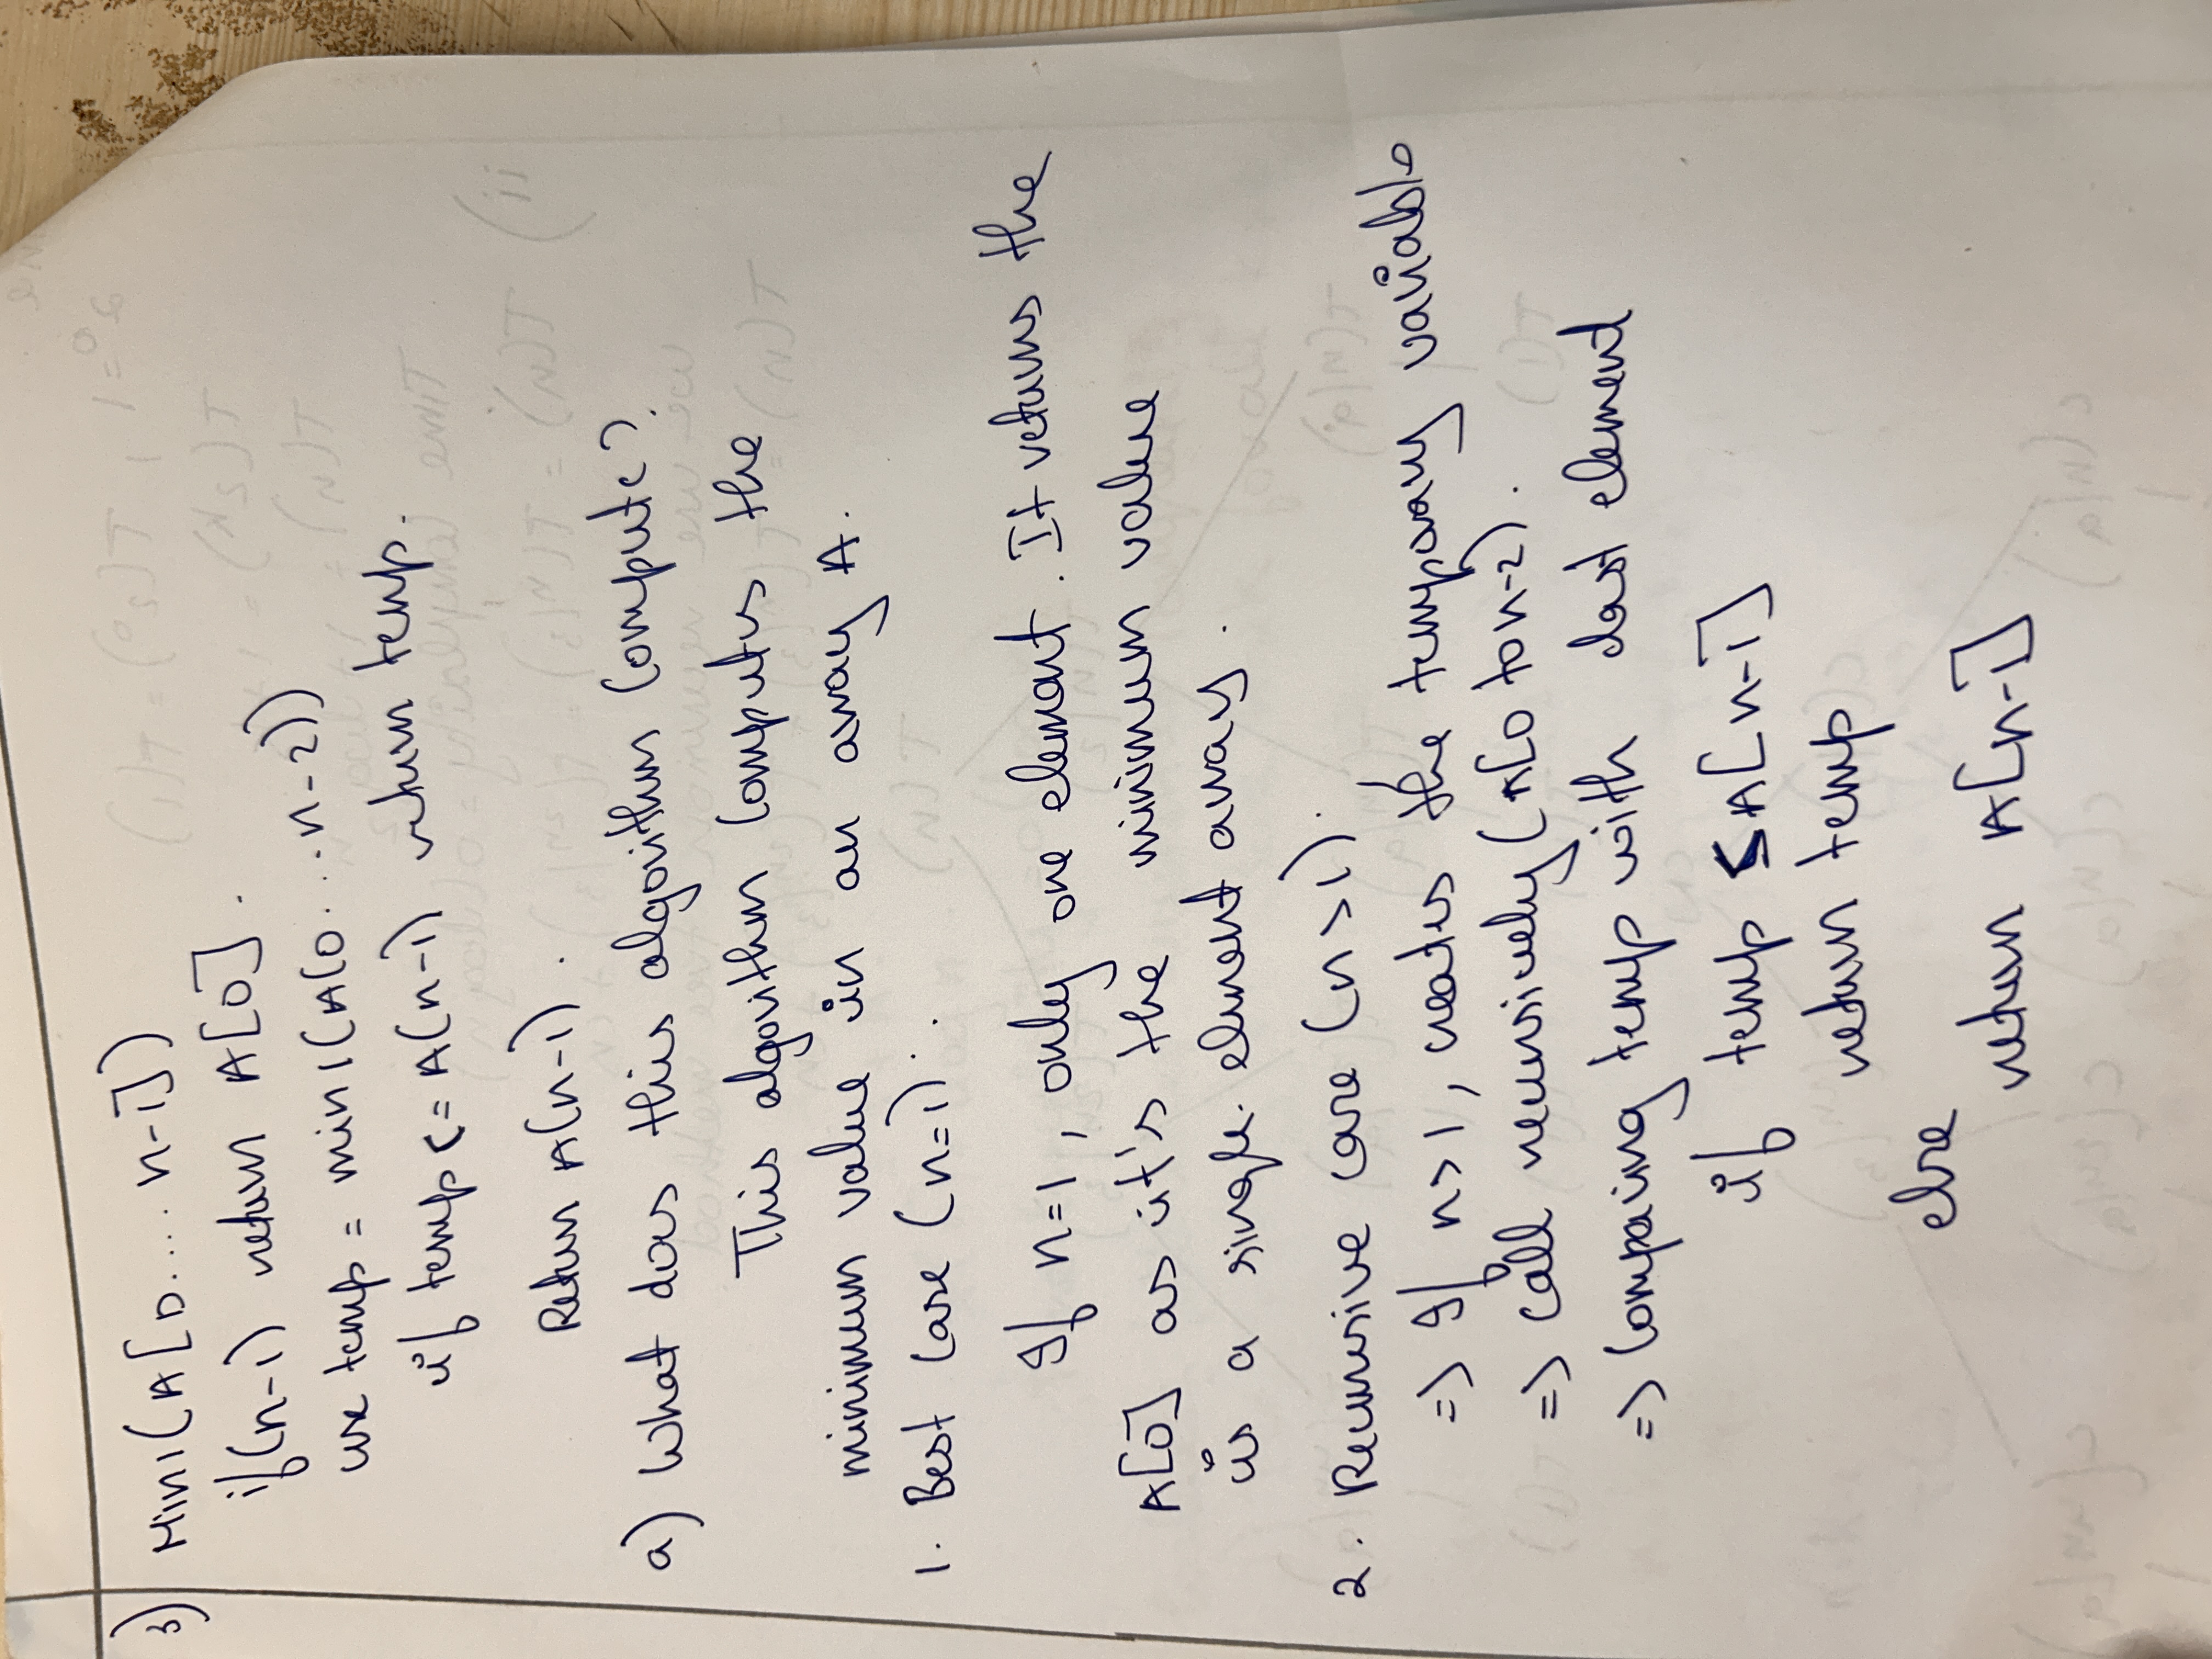 3) Min1(A[0.... n-1])
if(n-1) return A[0].
use temp = min1(A(0...n-2))
if temp <= A(n-1) return temp.
Return A(n-1).
a) What does this algorithm compute?
This algorithm computes the
minimum value in an array A.
1. Best case (n=1):
If n=1, only one element. It returns the
A[0] as it's the minimum value
is a single element array.
2. Recursive case (n>1):
=> If n>1, creates the temporary variable
=> call recursively (A[0 to n-2).
=> Comparing temp with last element
if temp ≤ A[n-1]
return temp
else
return A[n-1]